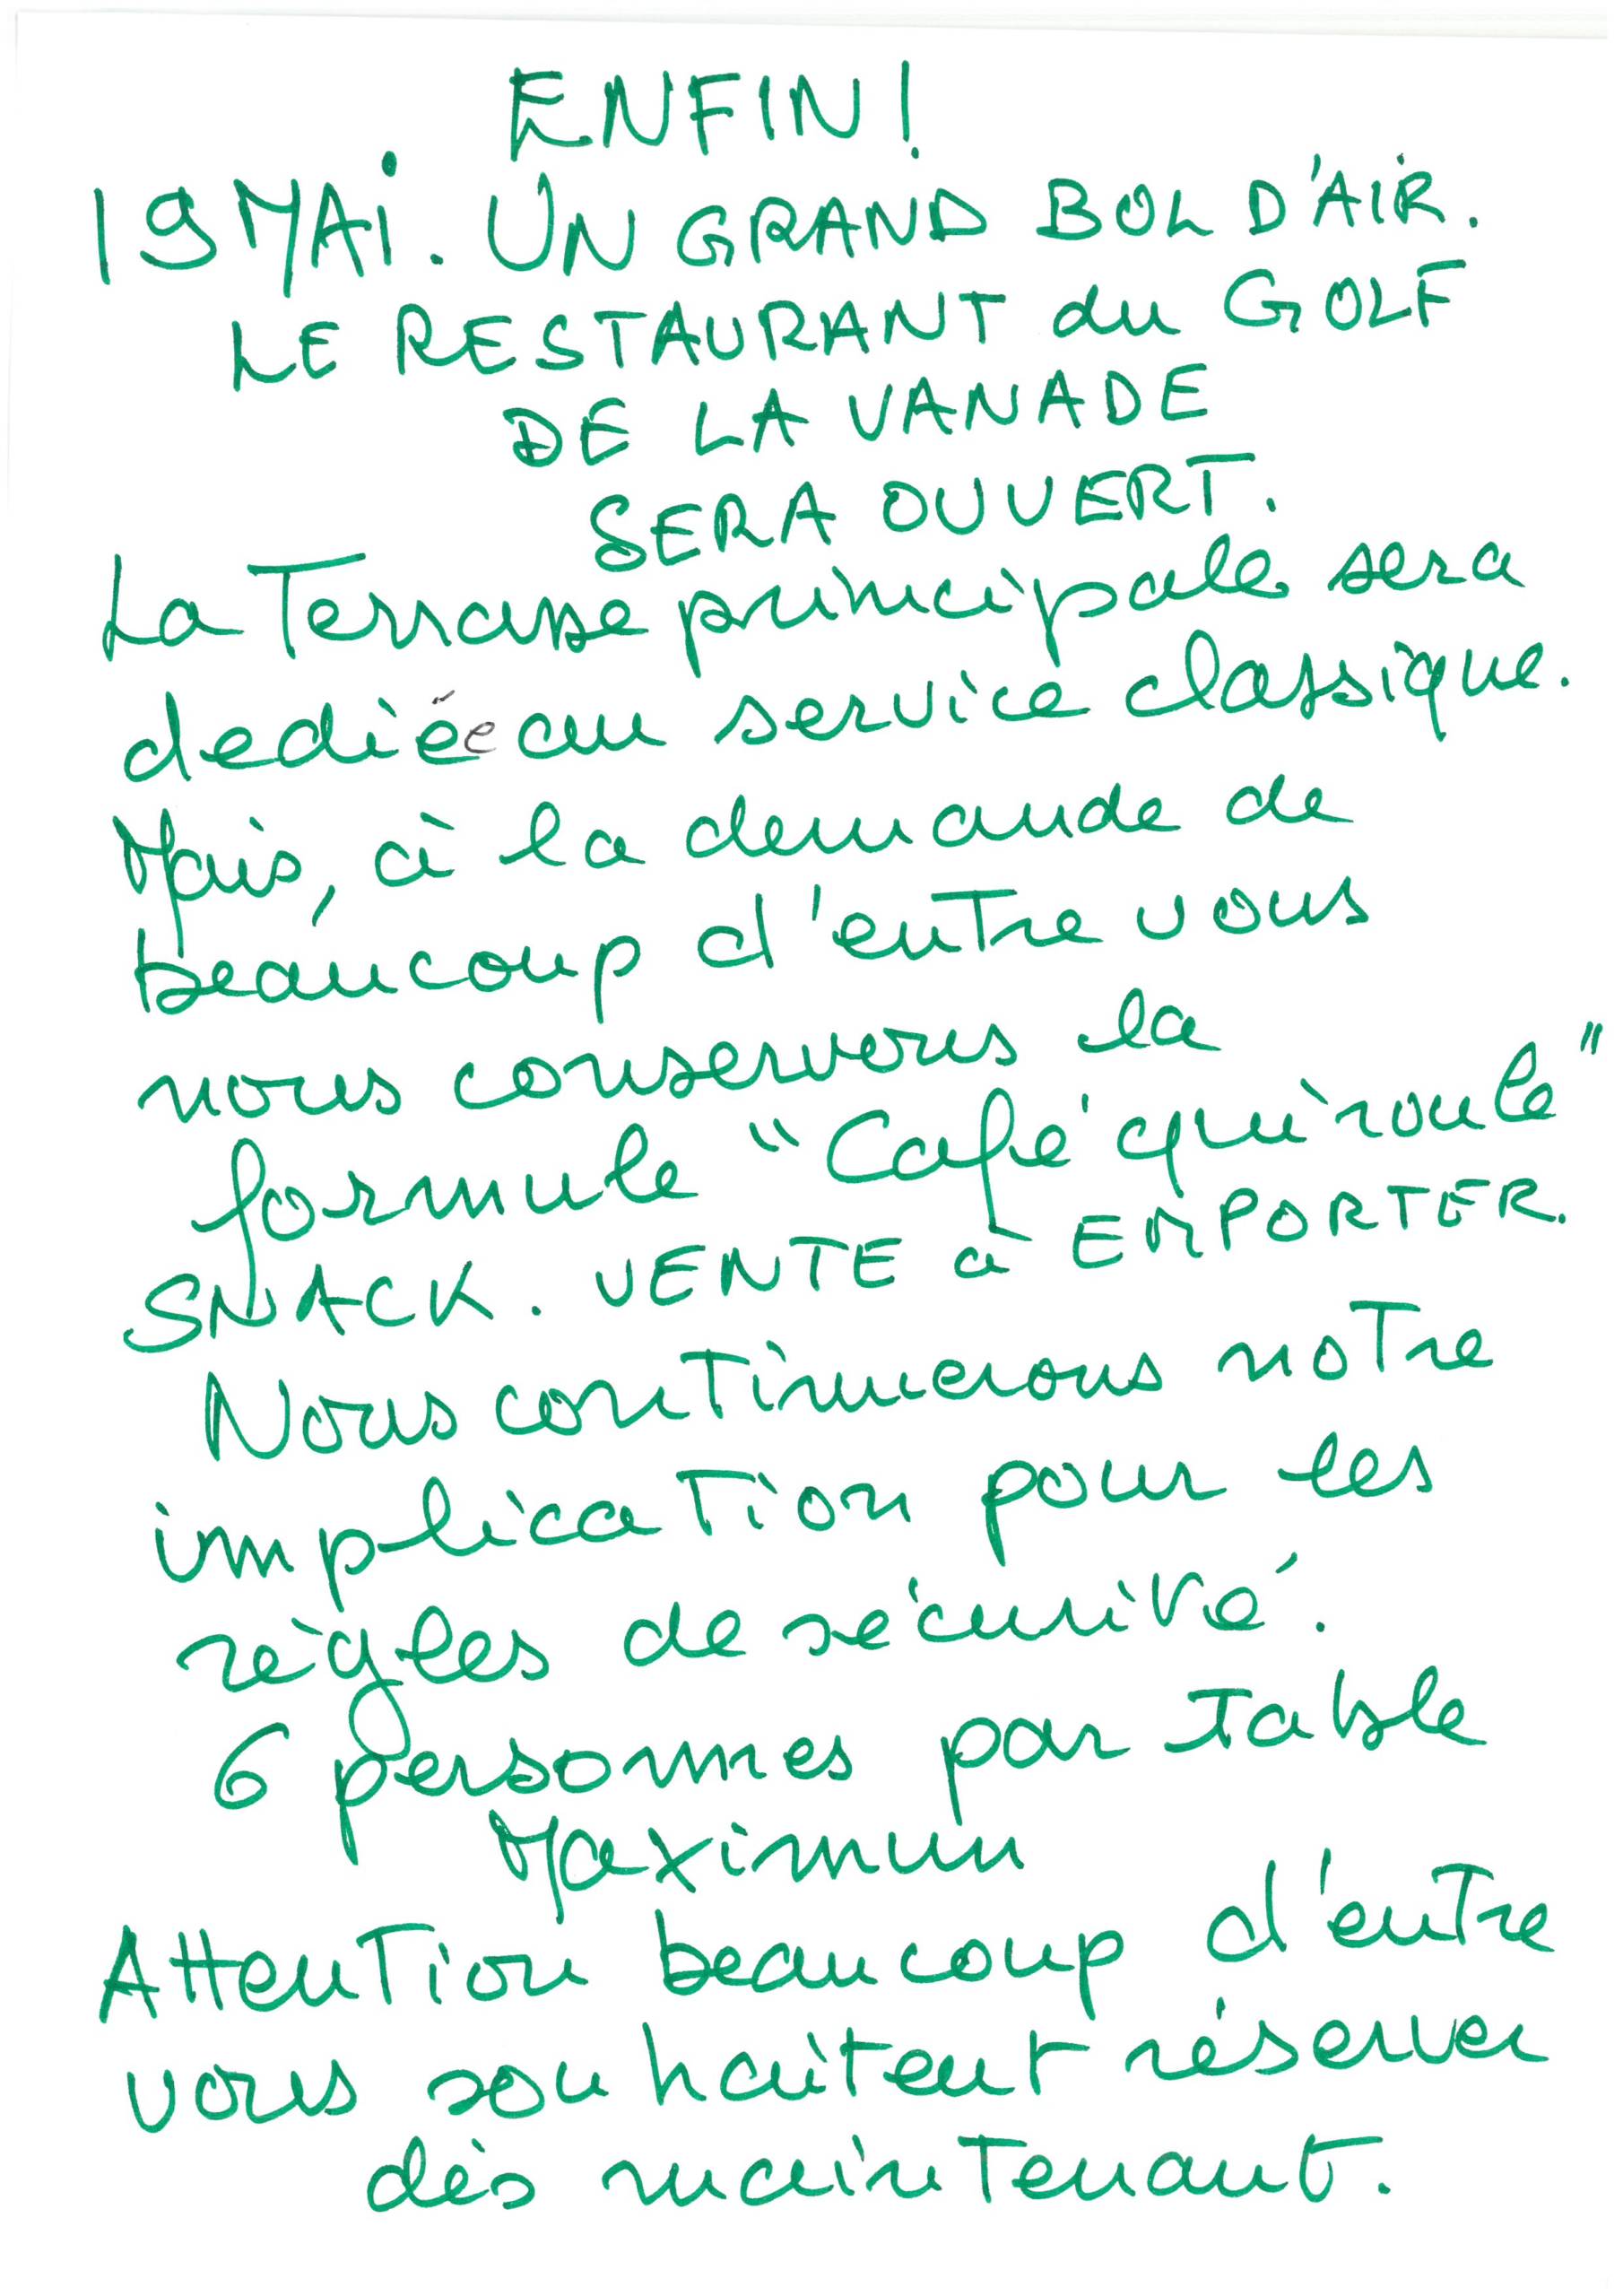 ENFIN!
19 MAi. UN GRAND BOL D'AiR.
LE RESTAURANT du GOLF
DE LA VANADE
SERA OUVERT.
La Terrasse principale sera
dediée au service classique.
Mais, à la demande de
beaucoup d'entre vous
nous conserverons la
formule "Café qui roule"
SNACK. VENTE à EMPORTER.
Nous continuerons notre
implication pour les
règles de sécurité.
6 personnes par table
Maximum
Attention beaucoup d'entre
vous souhaitent réserver
dès maintenant.